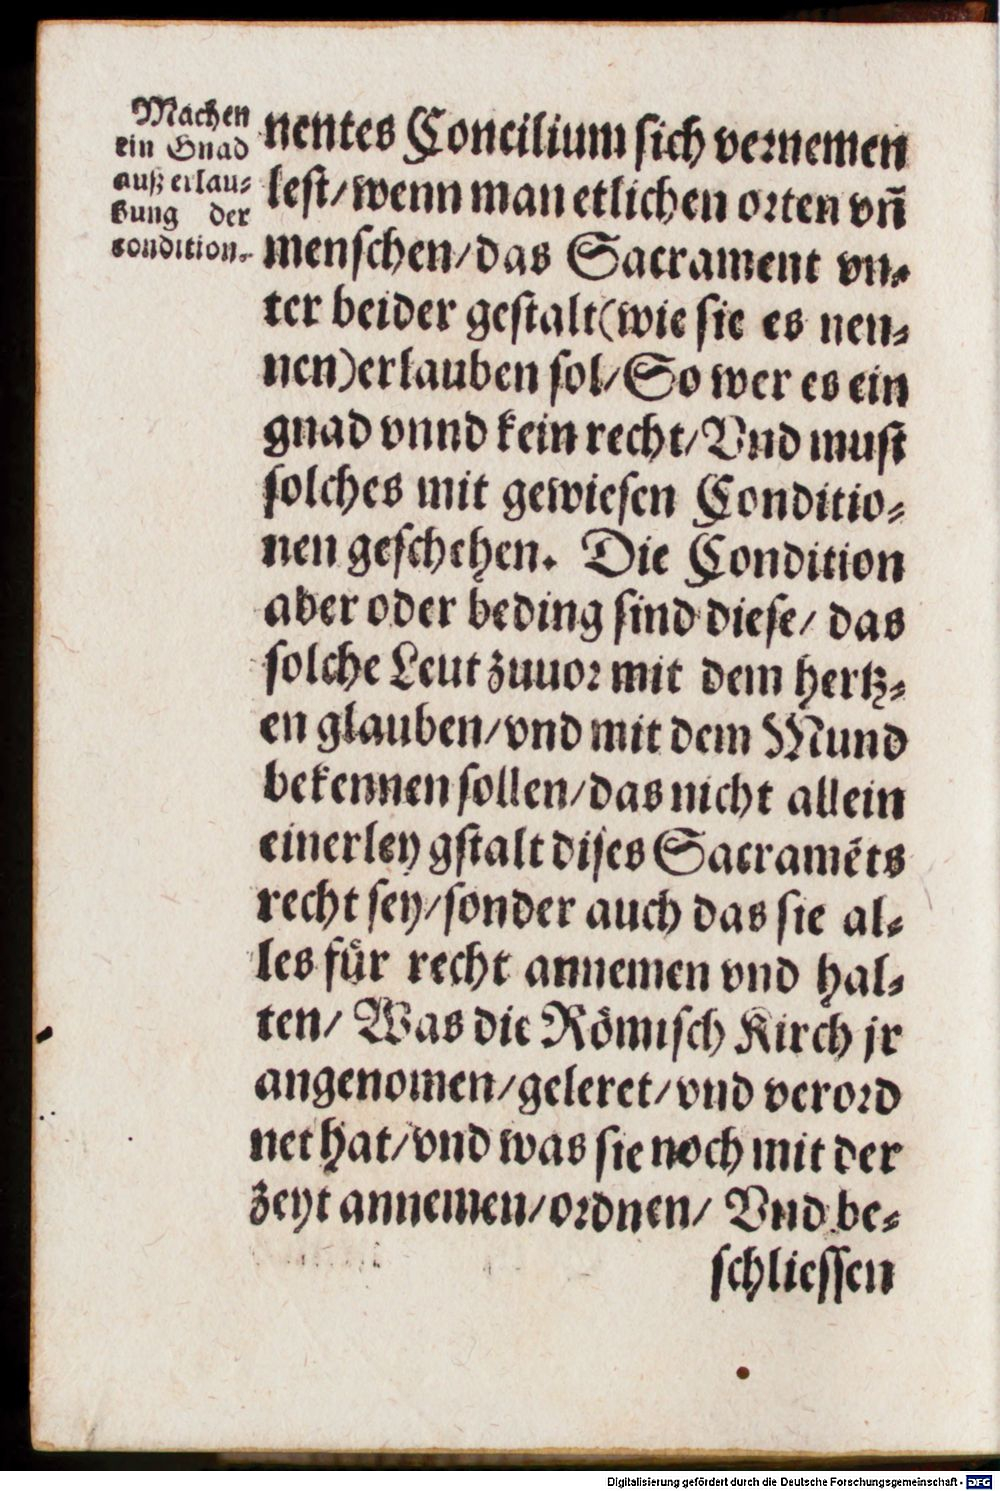 Machen
ein Gnad
auß erlau⸗
bung der
condition.
nentes Concilium sich vernemen
lest/ wenn man etlichen orten vñ
menschen/ das Sacrament vn⸗
ter beider gestalt (wie sie es nen⸗
nen) erlauben sol/ So wer es ein
gnad vnnd kein recht/ Vnd must
solches mit gewiesen Conditio⸗
nen geschehen. Die Condition
aber oder beding sind diese/ das
solche Leut zuuor mit dem hertz⸗
en glauben/ vnd mit dem Mund
bekennen sollen/ das nicht allein
einerley gstalt dises Sacramẽts
recht sey/ sonder auch das sie al⸗
les für recht annemen vnd hal⸗
ten/ Was die Römisch Kirch jr
angenomen/ geleret/ vnd verord
net hat/ vnd was sie noch mit der
zeyt annemen/ ordnen/ Vnd be⸗
schliessen
Digitalisierung gefördert durch die Deutsche Forschungsgemeinschaft - DFG